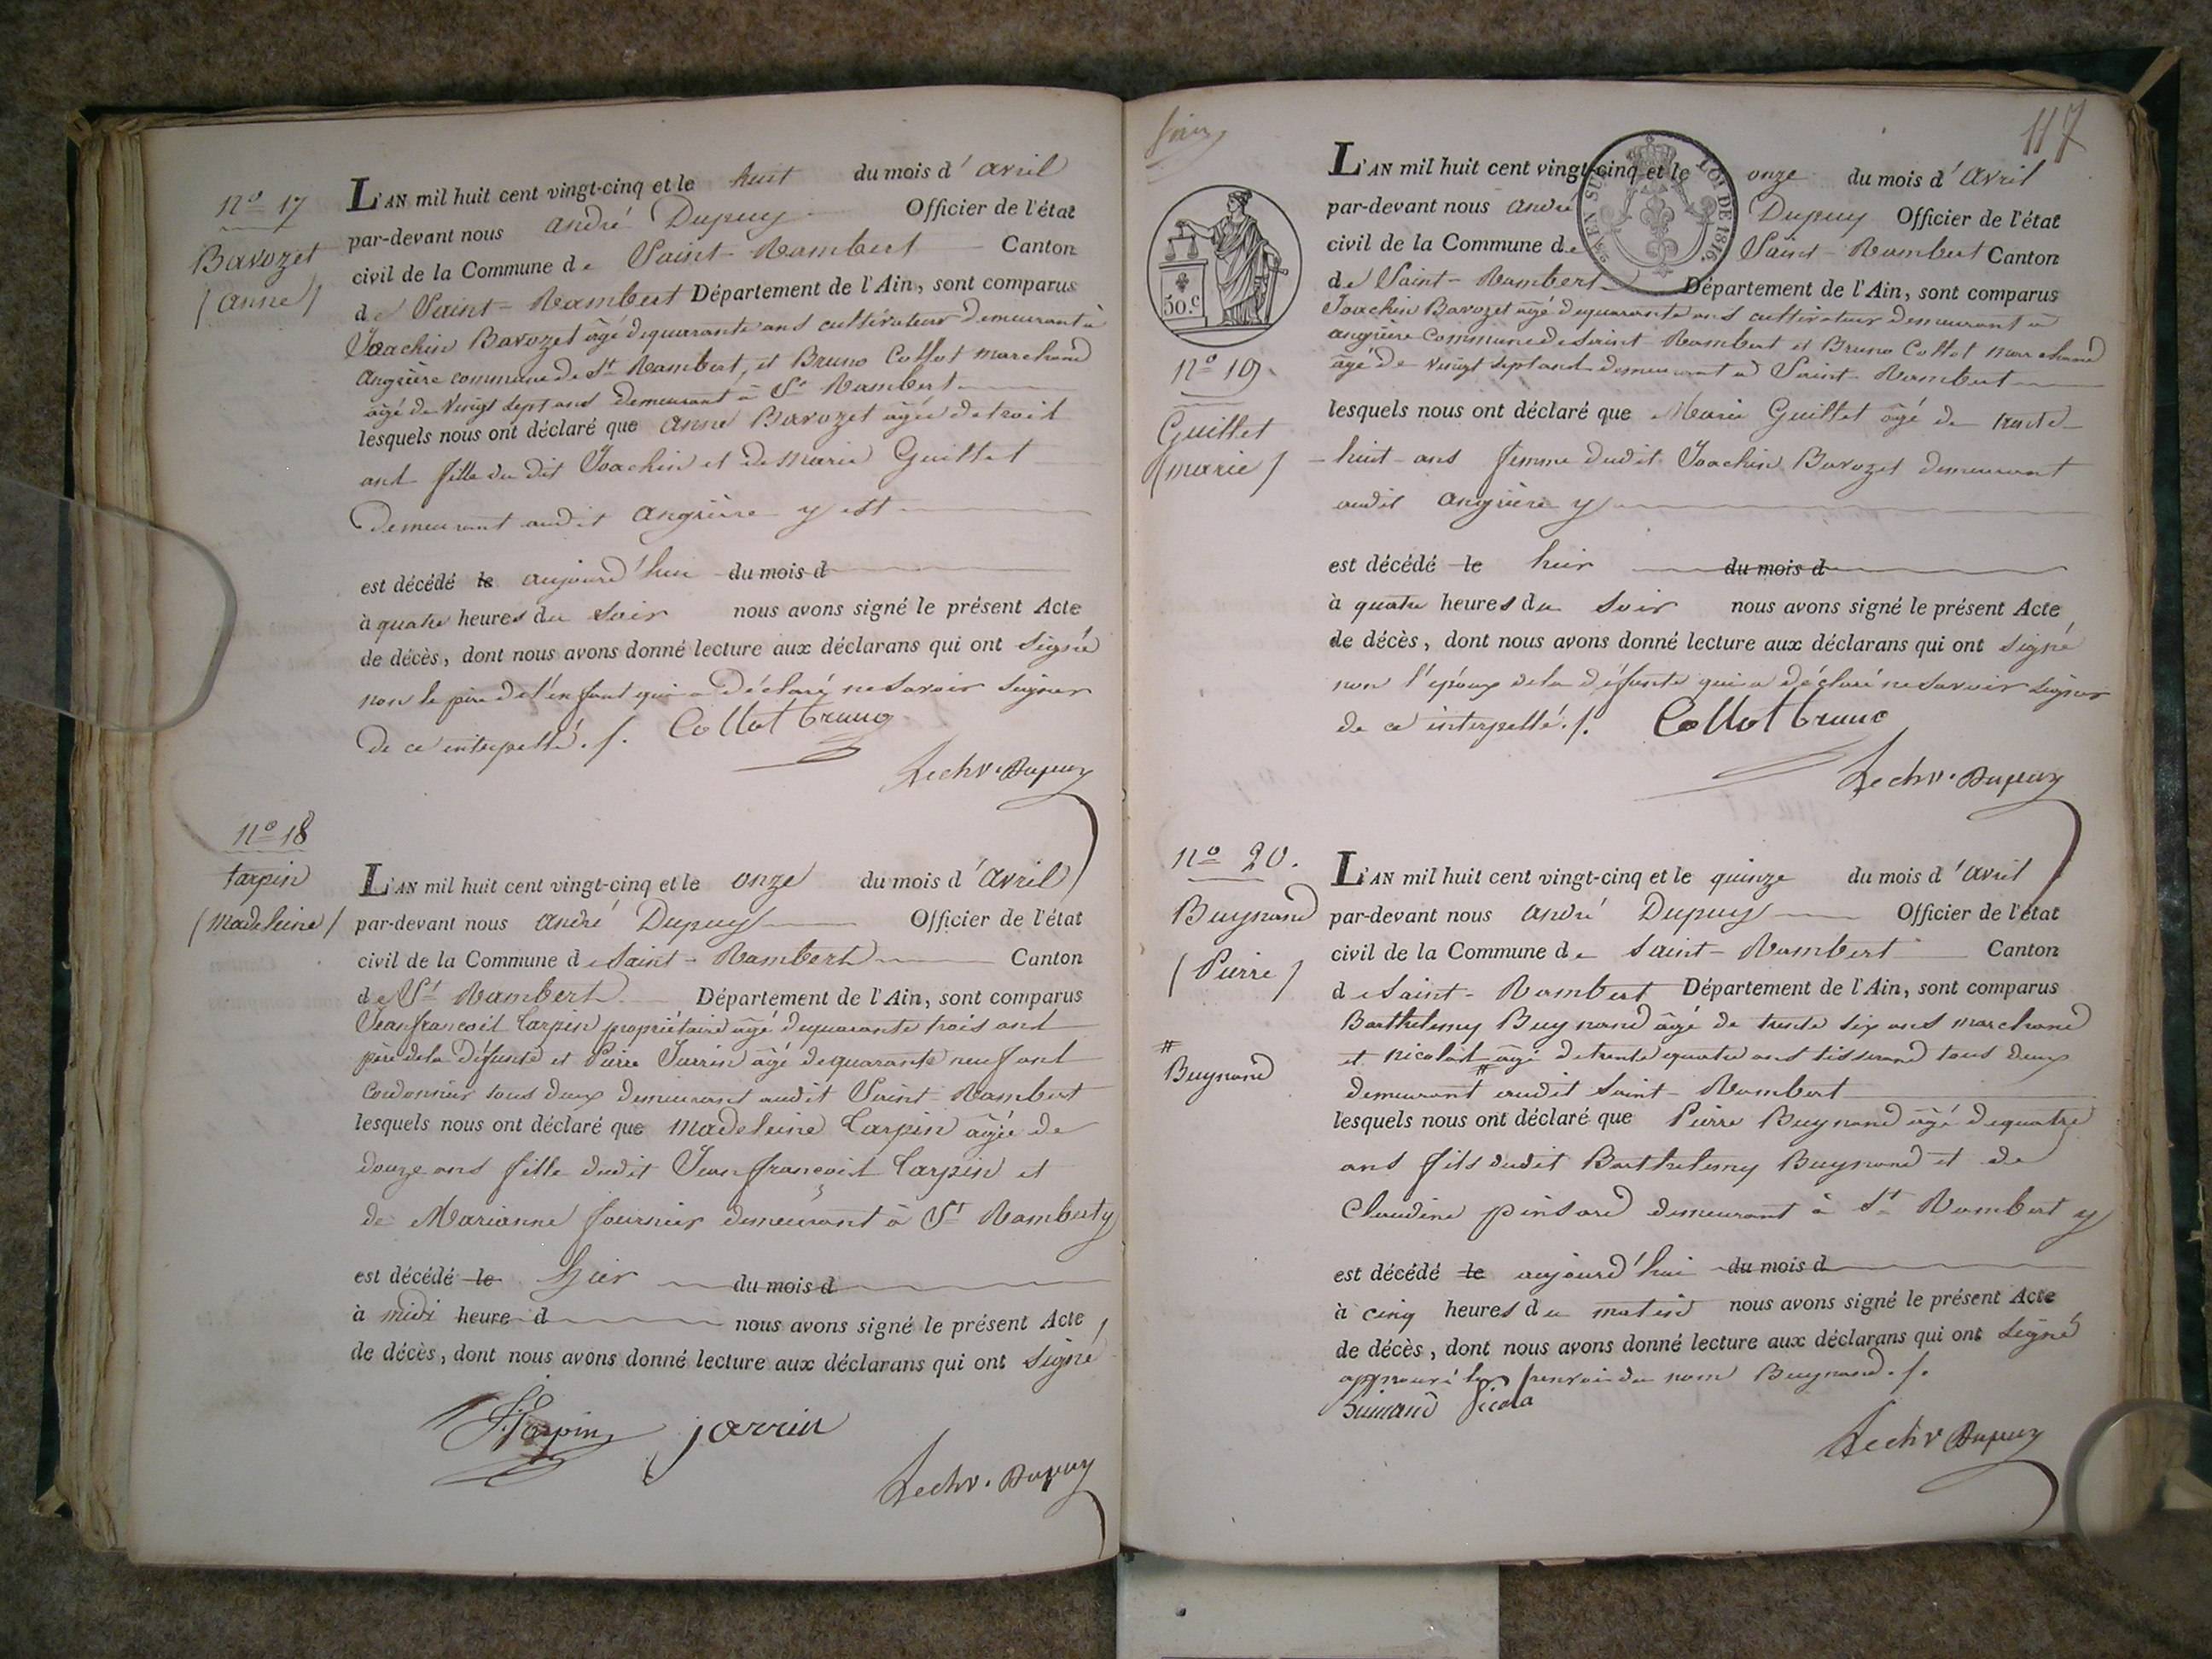 n° 17
Bavozet
(anne)
L'AN mil huit cent vingt-cinq et le huit du mois d'avril
par-devant nous andré Dupuy Officier de l'état
civil de la Commune de Saint-Rambert Canton
de Saint-Rambert Département de l'Ain, sont comparus
Joachin Bavozet âgé de quarante ans cultivateur demeurant à
angrière commune de St Rambert, et Bruno Collot marchand
âgé de vingt sept ans demeurant à St Rambert
lesquels nous ont déclaré que anne Bavozet âgée de trois
ans fille du dit Joachin et de marie Guillet
demeurant audit angrière y est
est décédé le aujourd'hui du mois d
à quatre heures du soir nous avons signé le présent Acte
de décès, dont nous avons donné lecture aux déclarans qui ont signé
non le père de l'enfant qui a déclaré ne savoir signer
de ce interpellé ./.  Collot bruno
Dupuy
n° 18
tarpin
(madeleine)
L'AN mil huit cent vingt-cinq et le onze du mois d'avril
par-devant nous andré Dupuy Officier de l'état
civil de la Commune de Saint-Rambert Canton
de St Rambert Département de l'Ain, sont comparus
Jean françois Tarpin propriétaire âgé de quarante trois ans
père de la défunte et Pierre Jarrin âgé de quarante neuf ans
Cordonnier tous deux demeurant audit Saint-Rambert
lesquels nous ont déclaré que Madeleine Tarpin âgée de
douze ans fille dudit Jean françois Tarpin et
de Marianne fournier demeurant à St Rambert y
est décédé le hier du mois d
à midi heure d nous avons signé le présent Acte
de décès, dont nous avons donné lecture aux déclarans qui ont signé
Tarpin jarrin
Dupuy
117
EN SUS
LOI DE 1816
50.c
n° 19
Guillet
(marie)
L'AN mil huit cent vingt-cinq et le onze du mois d'avril
par-devant nous andré Dupuy Officier de l'état
civil de la Commune de Saint-Rambert Canton
de Saint-Rambert Département de l'Ain, sont comparus
Joachin Bavozet âgé de quarante ans cultivateur demeurant à
angrière commune de Saint Rambert et Bruno Collot marchand
âgé de vingt sept ans demeurant à Saint-Rambert
lesquels nous ont déclaré que Marie Guillet âgé de trente
-huit ans femme dudit Joachin Bavozet demeurant
audit angrière y
est décédé le hier du mois d
à quatre heures du soir nous avons signé le présent Acte
de décès, dont nous avons donné lecture aux déclarans qui ont signé
non l'époux de la défunte qui a déclaré ne savoir signer
de ce interpellé ./. Collot bruno
Dupuy
n° 20.
Buynand
(Pierre)
L'AN mil huit cent vingt-cinq et le quinze du mois d'avril
par-devant nous andré Dupuy Officier de l'état
civil de la Commune de Saint-Rambert Canton
de Saint-Rambert Département de l'Ain, sont comparus
Barthelemy Buynand âgé de trente six ans marchand
et nicolas # âgé de trente quatre ans tisserand tous deux
# Buynand
demeurant audit Saint-Rambert
lesquels nous ont déclaré que Pierre Buynand âgé de quatre
ans fils dudit Barthelemy Buynand et de
Claudine pinsard demeurant à St Rambert y
est décédé le aujourd'hui du mois d
à cinq heures du matin nous avons signé le présent Acte
de décès, dont nous avons donné lecture aux déclarans qui ont signé
approuvé le renvoi du nom Buynand ./.
Dupuy